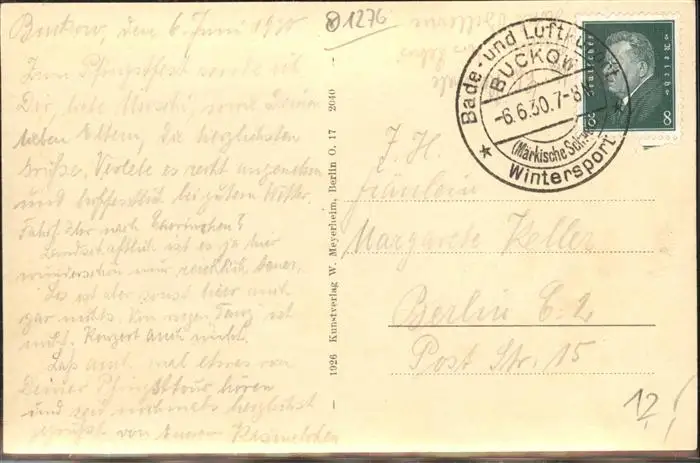 81276
Buckow, den 6. Juni 1930
Zum Pfingstfest sende ich
Dir, liebe Muschi, sowie Deinen
lieben Eltern, die herzlichsten
Grüße. Verlebe es recht angenehm
und hoffentlich bei gutem Wetter.
Fahrt Ihr nach Chorinchen?
Landschaftlich ist es ja hier
wunderschön nur reichlich teuer.
Los ist aber sonst hier auch
gar nichts. Von wegen Tanz ist
nicht. Konzert auch nicht.
Laß auch mal etwas von
Deiner Pfingsttour hören
und sei nochmals herzlichst
gegrüßt von
– 1926 Kunstverlag W. Meyerheim, Berlin O. 17 2040 –
Bade- und Luftkurort
BUCKOW
-6.6.30.7-8
(Märkische Schweiz)
Wintersport
Deutsches Reich
8 8
F. H.
Fräulein
Margarete Keller
Berlin C. 2
Post Str. 15
12